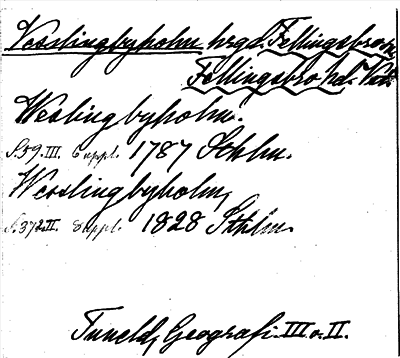 Vesslingbyholm hrgd. Fellingsbro sn
Fellingsbro hd. Vstm.
Weslingbyholm.
S. 59. III. Suppl. 1787 Sthlm.
Wesslingbyholm,
S. 372. II. Suppl. 1828 Sthlm.
Tuneld, Geografi. III o. II.